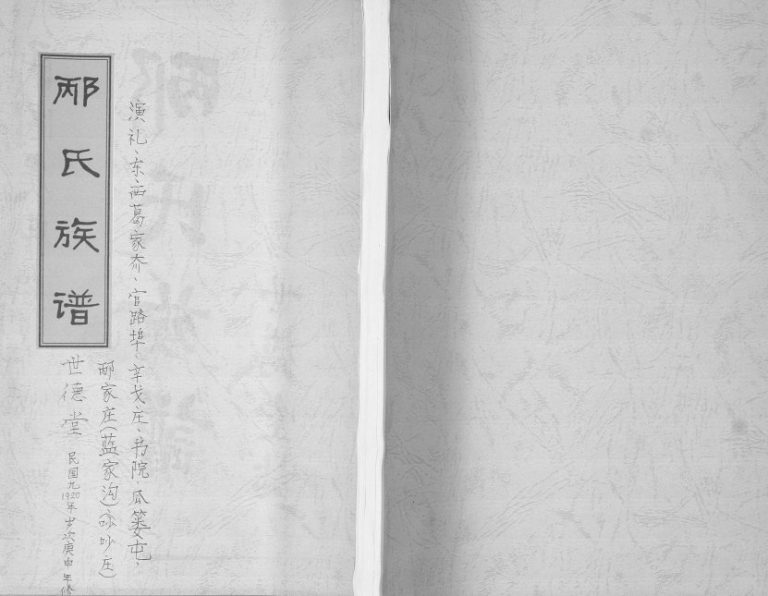 邴氏族谱
演礼、东、西葛家夼、官路埠、辛戈庄、书院、瓜篓屯、
邴家庄(蓝家沟)(吵吵庄)
世德堂
民国九1920年岁次庚申年修